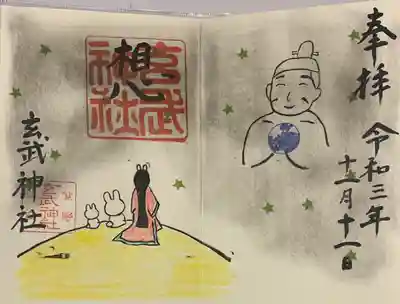 奉拝
令和三年
十一月十一日
玄武神社
想
玄武神社
玄武神社